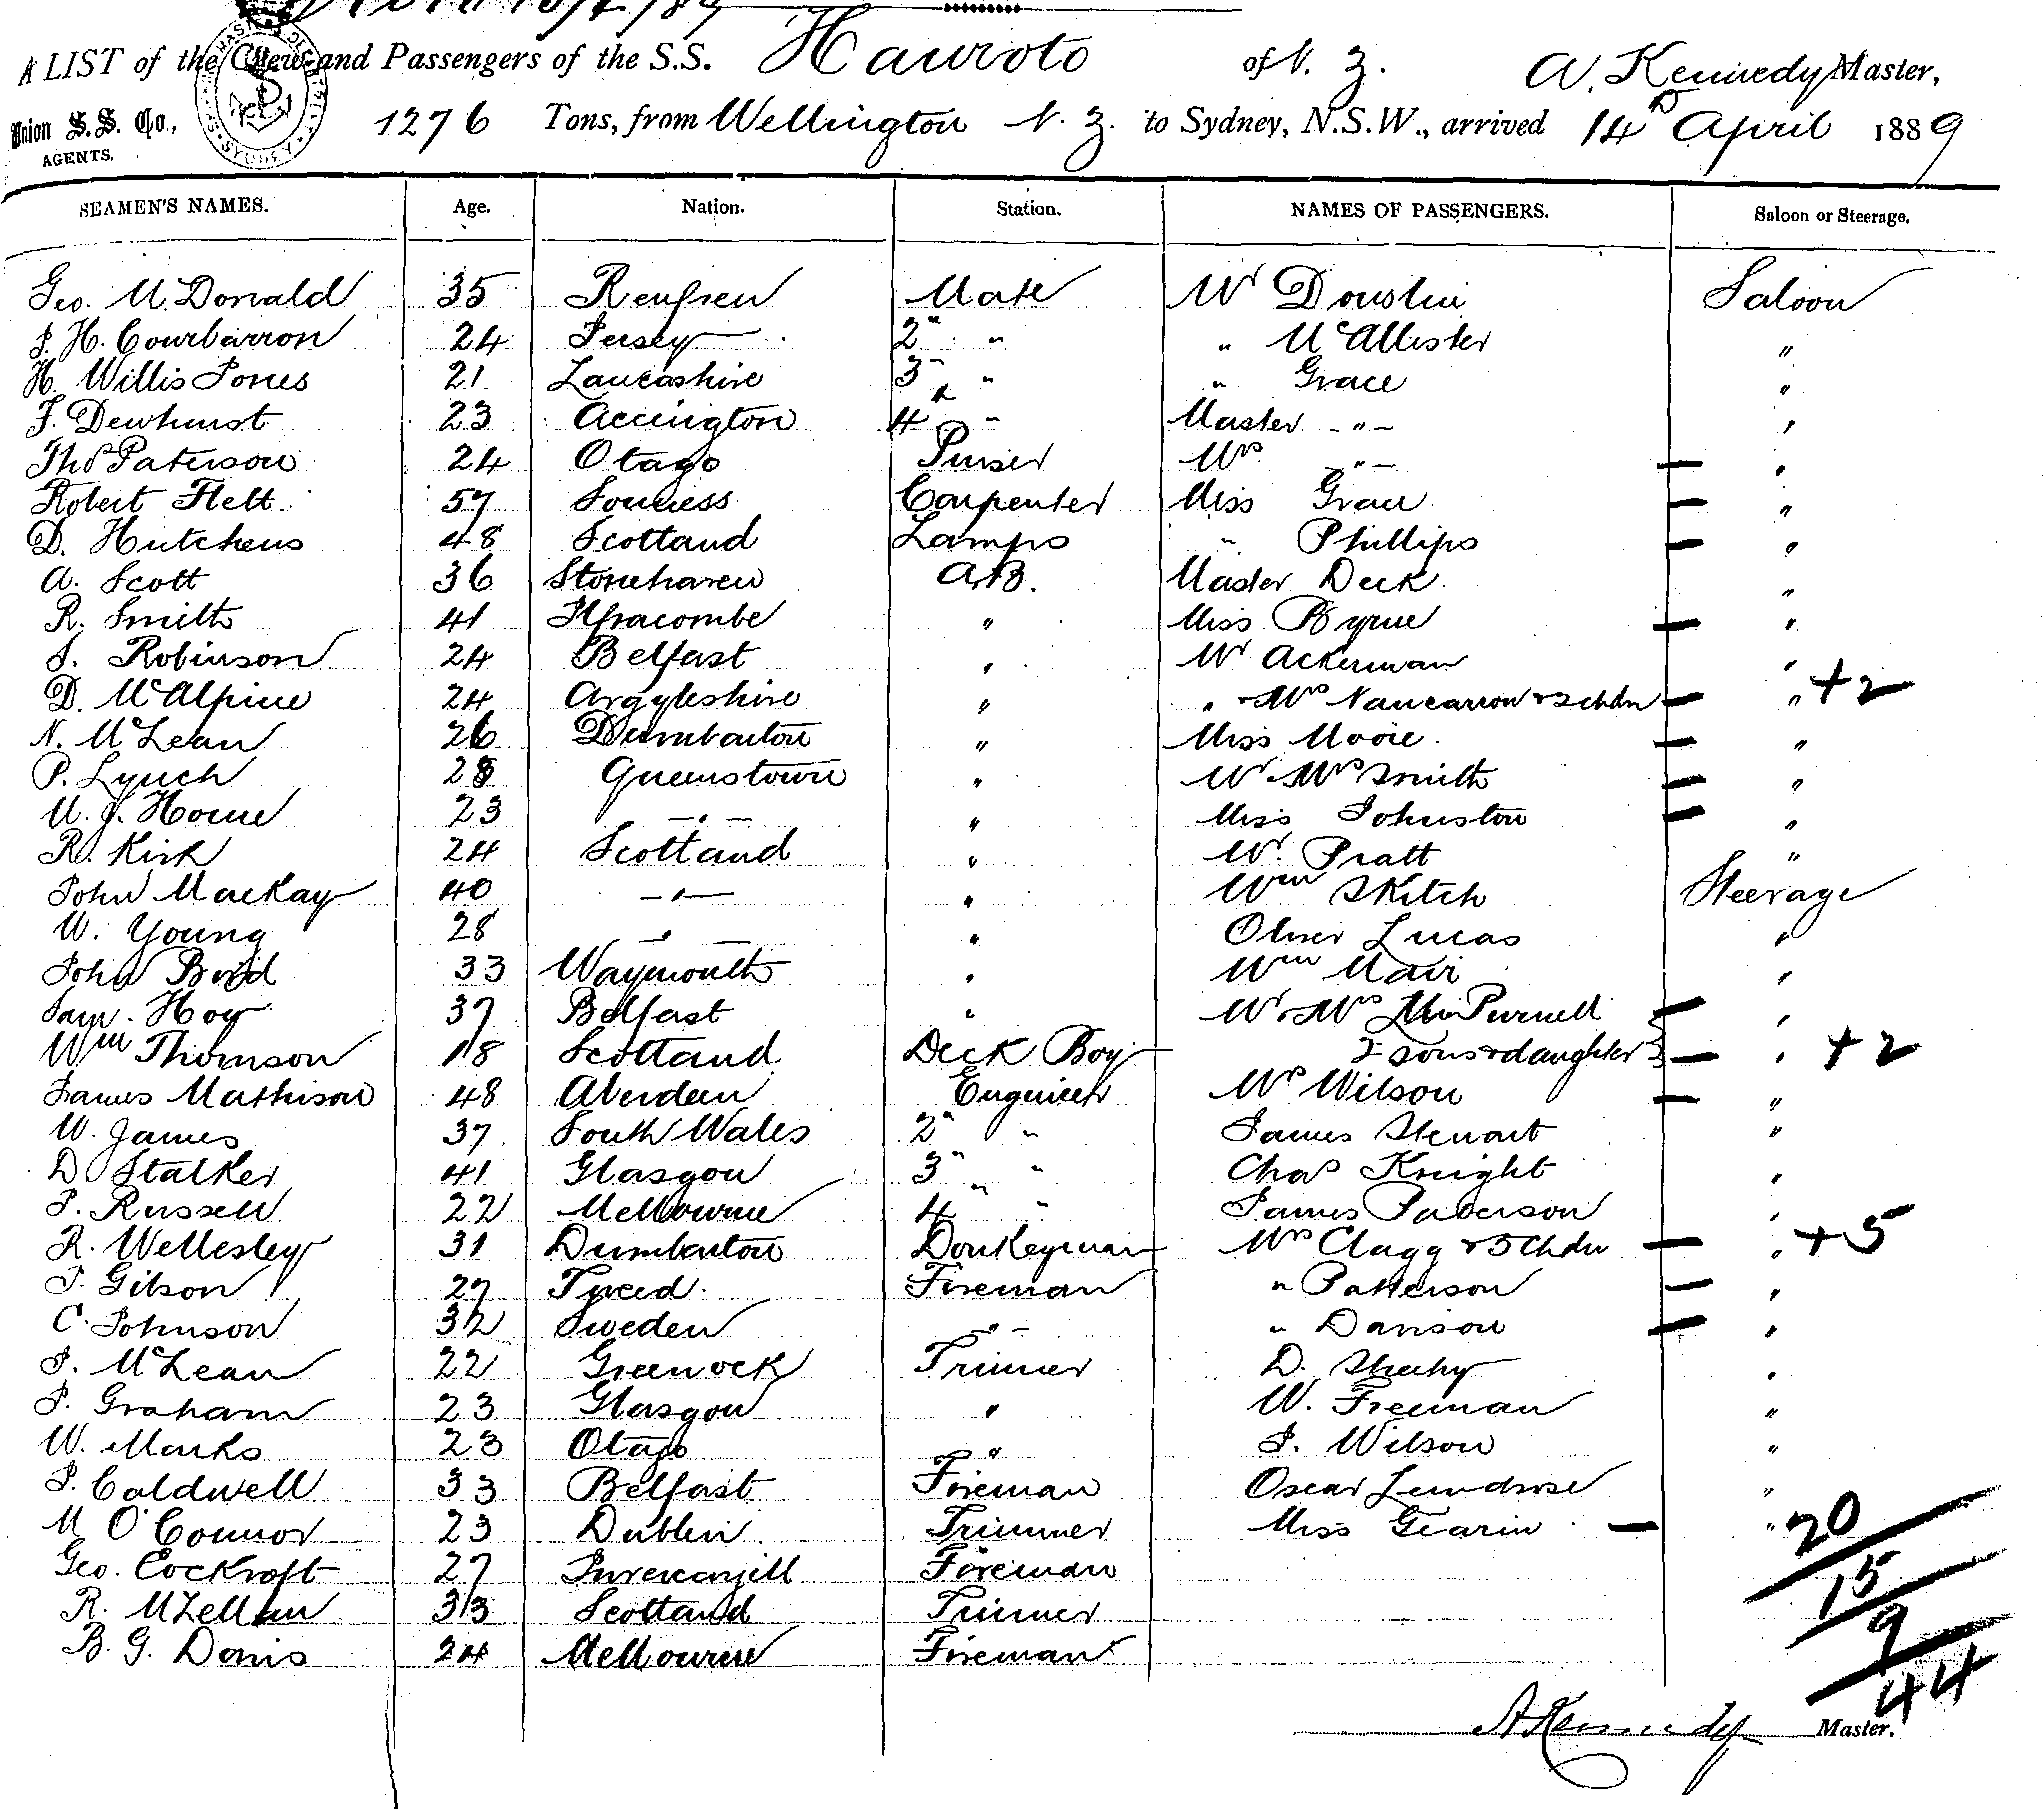 A LIST of the Crew and Passengers of the S.S. Hauroto of N. Z. A. Kennedy Master,
Union S.S. Co., AGENTS. 1276 Tons, from Wellington N. Z. to Sydney, N.S.W., arrived 14th April 1889
SEAMEN'S NAMES. Age. Nation. Station. NAMES OF PASSENGERS. Saloon or Steerage.
Geo. McDonald 35 Renfrew Mate Mr Douslin Saloon
J. H. Courbarron 24 Jersey 2nd " " McAllister "
H. Willis Jones 21 Lancashire 3rd " " Grace "
F. Dewhurst 23 Accrington 4th " Master - " - "
Thos Paterson 24 Otago Purser Mrs - " - — "
Robert Flett 57 Carpenter Miss Grace — "
D. Hutchens 48 Scotland Lamps " Phillips — "
A. Scott 36 Stonehaven A.B. Master Deck "
R. Smith 41 Ilfracombe " Miss Byrne — "
J. Robinson 24 Belfast " Mr Ackerman "
D. McAlpine 24 Argyleshire " " & Mrs Nancarrow & 2 chdn — " +2
N. McLean 26 Dumbarton " Miss Moore — "
P. Lynch 28 Queenstown " Mr & Mrs Smith — "
M. J. Horne 23 - " - " Miss Johnston — "
R. Kirk 24 Scotland " Mr. Pratt "
John Mackay 40 - " - " Wm Skitch Steerage
W. Young 28 - " - " Oliver Lucas "
John Boyd 33 Waymouth " Wm Mair "
Sam. Hoy 37 Belfast " Mr & Mrs Purnell — "
Wm Thomson 18 Scotland Deck Boy 2 sons & daughter } — " +2
James Mathison 48 Aberdeen Engineer Mrs Wilson — "
W. James 37 South Wales 2nd " James Stewart "
D Stalker 41 Glasgow 3rd " Chas Knight "
J. Russell 22 Melbourne 4th " James Paterson "
R. Wellesley 31 Dumbarton Donkeyman Mrs Clagg & 5 Chdn — " +5
J. Gibson 27 Tweed Fireman " Patterson — "
C. Johnson 32 Sweden - " - " Davison — "
J. McLean 22 Greenock Trimmer D. Sheehy "
J. Graham 23 Glasgow " W. Freeman "
W. Marks 23 Otago " J. Wilson "
J. Caldwell 33 Belfast Fireman Oscar "
M O'Connor 23 Dublin Trimmer Miss Gearin — " 20
Geo. Cockroft 27 Invercargill Fireman 15
R. McLellan 33 Scotland Trimmer 9
B. G. Davis 24 Melbourne Fireman 44
A Kennedy Master.